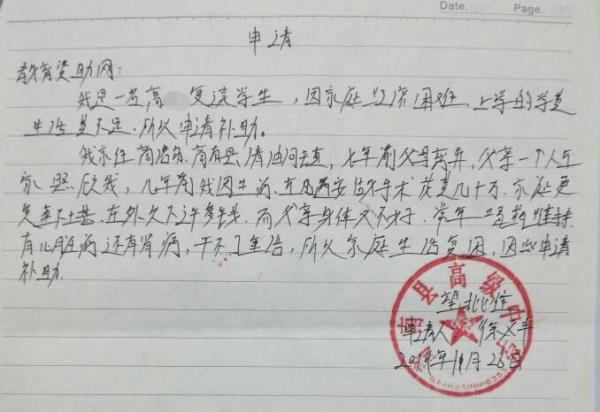 Date.
Page.
申请
教育资助网：
我是一名高 复读学生，因家庭经济困难，上学的学费
生活费不足，所以申请补助。
我家住商洛市商南县清油河镇，七年前父母离异，父亲一个人在
家照顾我，几年前我因生病，在西安做手术花费几十万，家庭更
是 在外欠下许多钱，而父亲身体又不好，常年吃药维持
有心脏病还有肾病，干不了重活，所以家庭生活贫困，因此申请
补助。
望批准
申请人 徐
县高级中